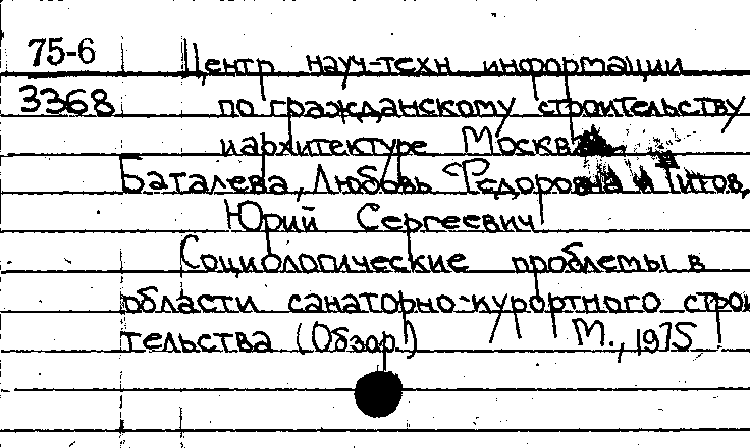 75-6 Центр науч-техн информации
3368 по гражданскому строительству
и архитектуре Москва
Баталева, Любовь Федоровна и Титов,
Юрий Сергеевич
Социологические проблемы в
области санаторно-курортного строи
тельства (Обзор.) М., 1975